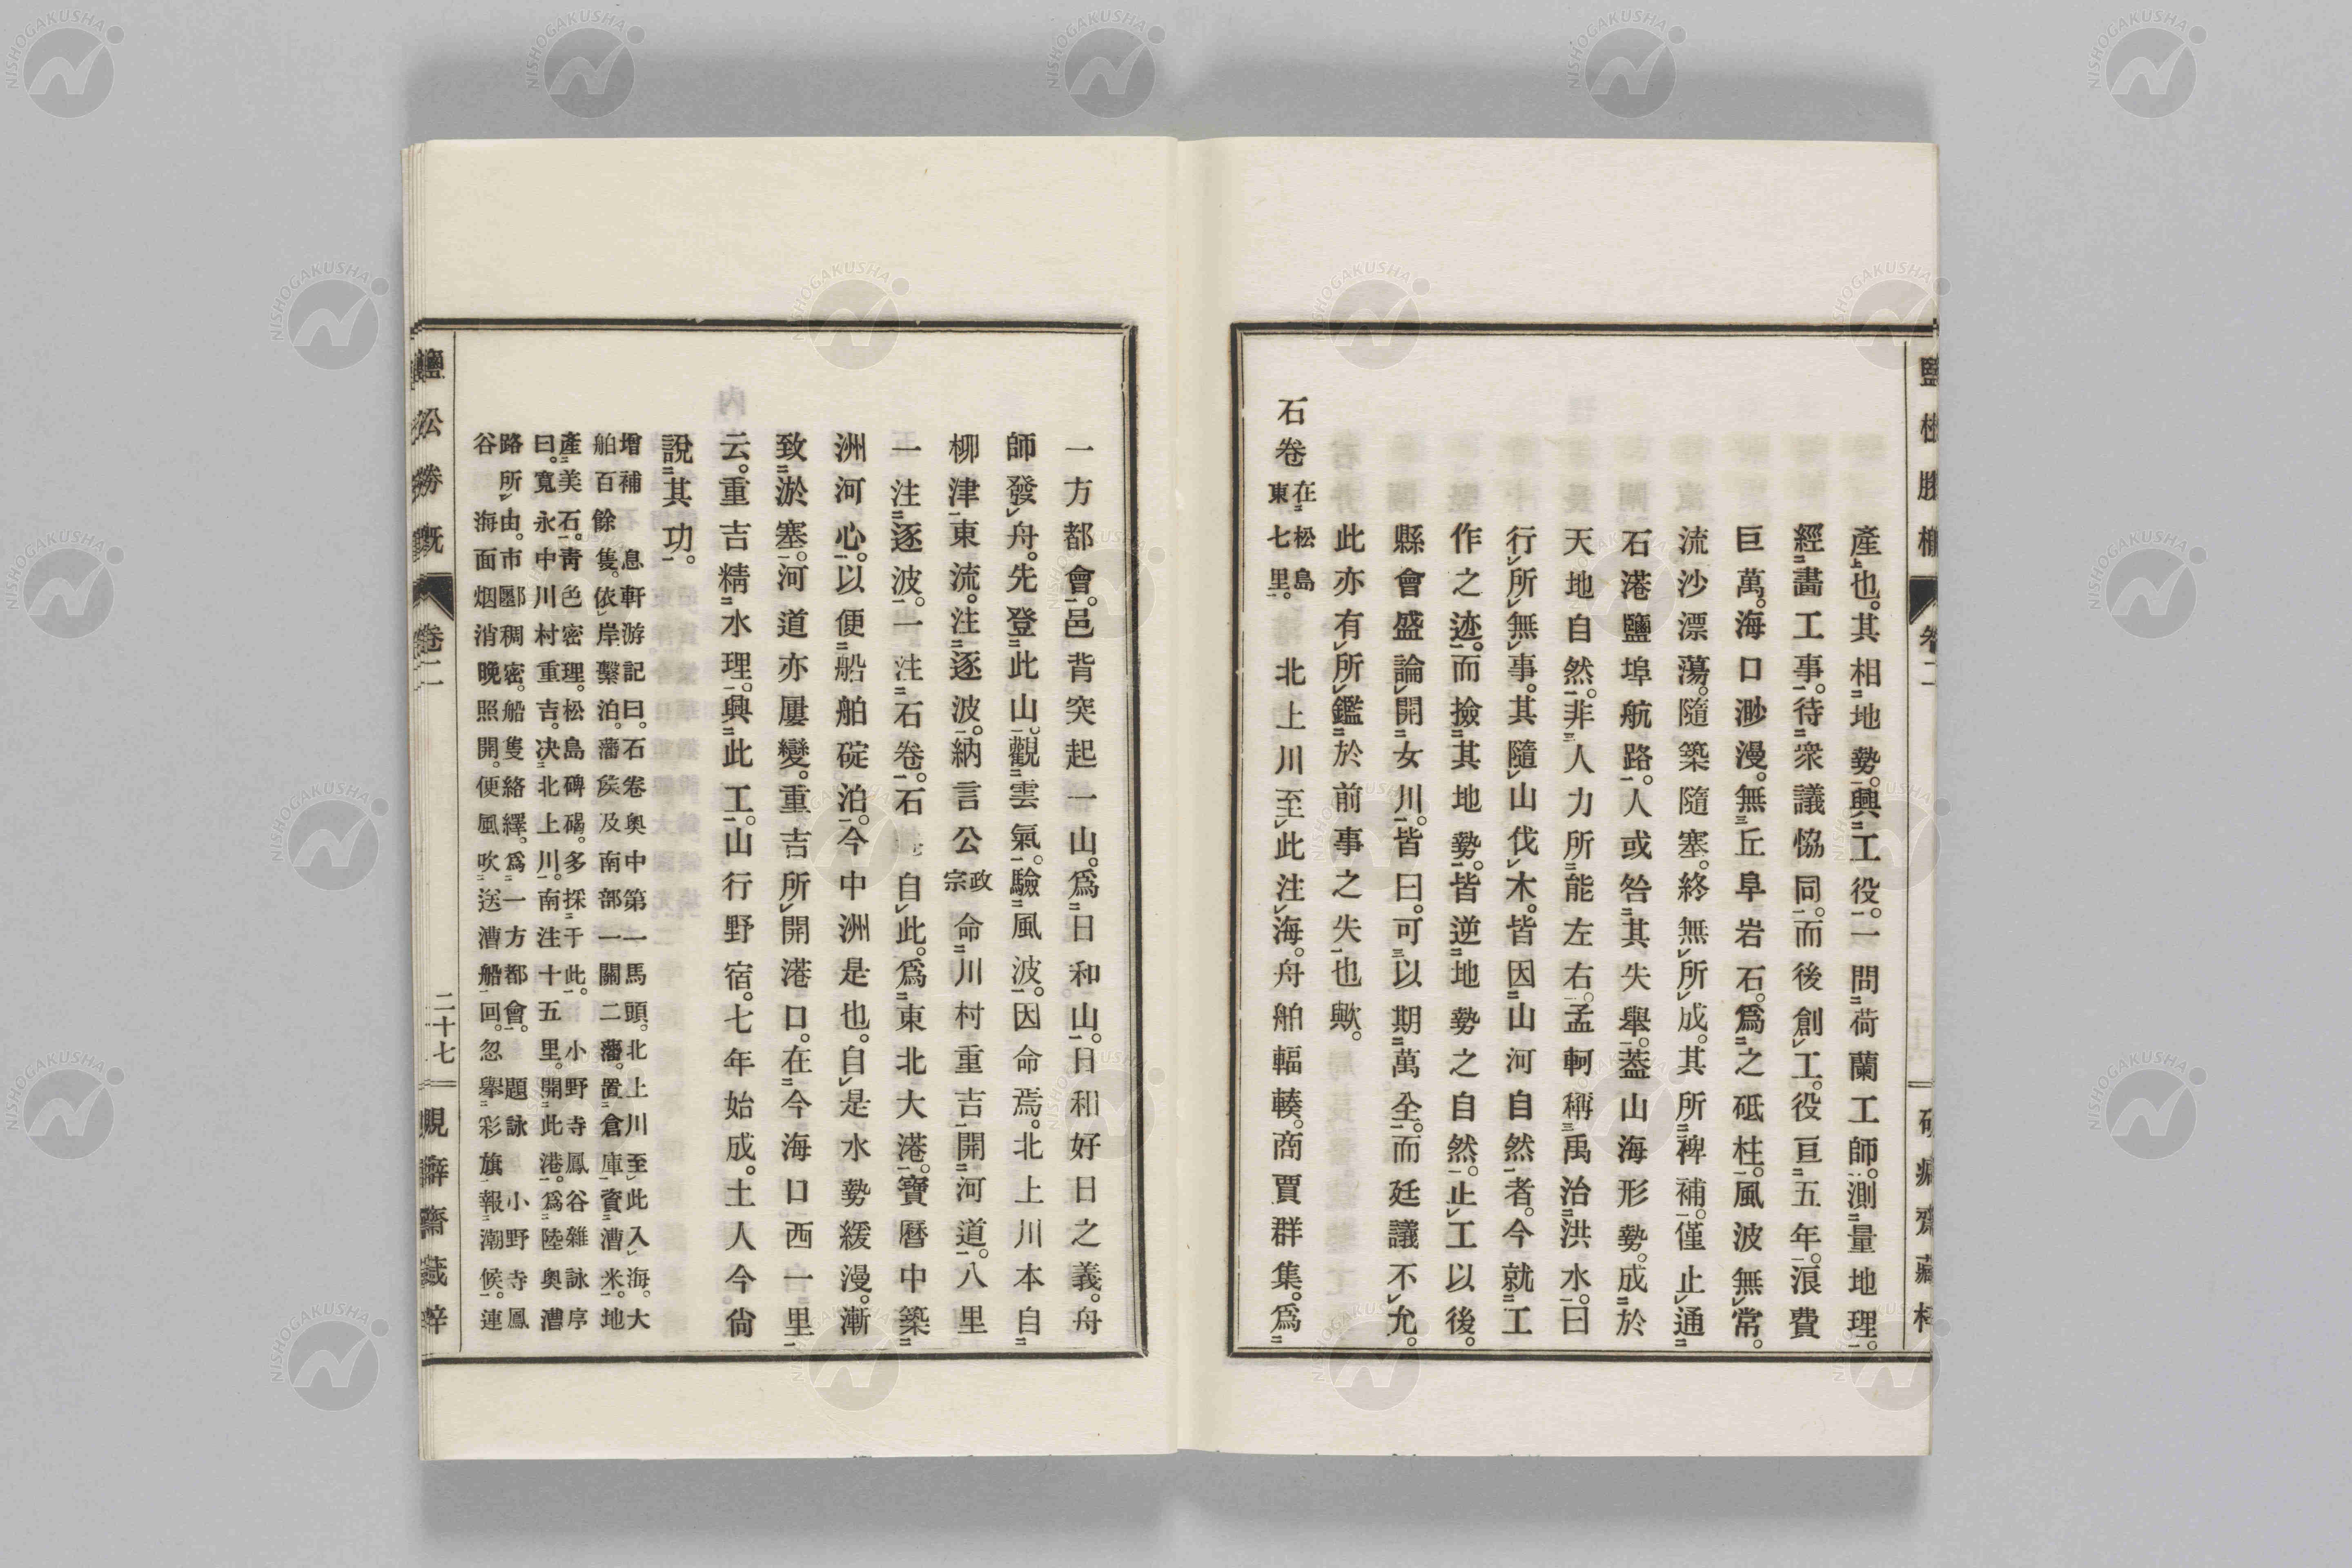 產也。其相地勢。興工役。一問荷蘭工師。測量地理。
經畫工事。待衆議恊同。而後創工。役亘五年。浪費
巨萬。海口渺漫。無丘阜岩石。爲之砥柱。風波無常。
流沙漂蕩。隨築隨塞。終無所成。其所裨補。僅止通
石港鹽埠航路。人或咎其失舉。葢山海形勢。成於
天地自然。非人力所能左右。孟軻稱禹治洪水。曰
行所無事。其隨山伐木。皆因山河自然者。今就工
作之迹。而撿其地勢。皆逆地勢之自然。止工以後。
縣會盛論開女川。皆曰。可以期萬全。而廷議不允。
此亦有所鑑於前事之失也歟。
石卷 在松島東七里。 北上川至此注海。舟舶輻輳。商賈群集。爲
一方都會。邑背突起一山。爲日和山。日和好日之義。舟
師發舟。先登此山。觀雲氣。驗風波。因命焉。北上川本自
柳津東流。注逐波。納言公政宗命川村重吉開河道。八里
一注逐波。一注石卷。石自此。爲東北大港。寶曆中築
洲河心。以便船舶碇泊。今中洲是也。自是水勢緩漫。漸
致淤塞。河道亦屢變。重吉所開港口。在今海口西一里
云。重吉精水理。興此工。山行野宿。七年始成。土人今尙
說其功。
增補 息軒游記曰。石卷奧中第一馬頭。北上川至此入海。大
舶百餘隻。依岸繫泊。藩侯及南部一關二藩。置倉庫。資漕米。地
產美石。靑色密理。松島碑碣。多採于此。 小野寺鳳谷雜詠序
曰。寬永中川村重吉。决北上川。南注十五里。開此港。爲陸奧漕
路所由。市郾稠密。船隻絡繹。爲一方都會。 題詠 小野寺鳳
谷 海面烟消晚照開。便風吹送漕船回。忽舉彩旗報潮候。連
鹽松勝概 卷二 二十七